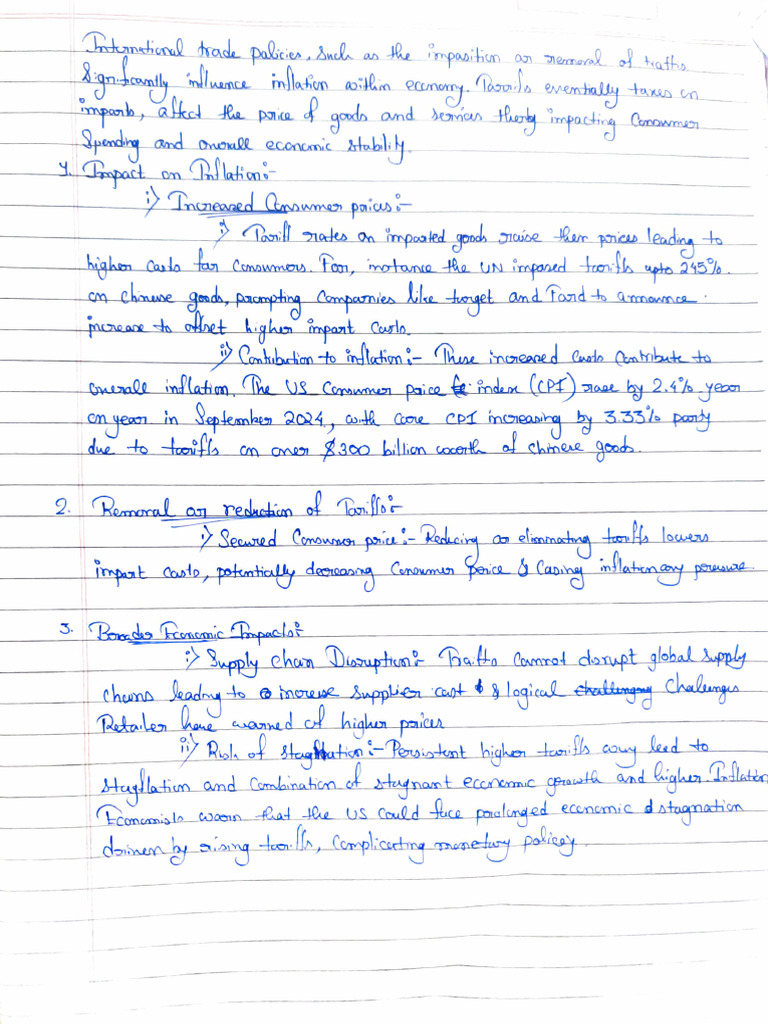 International trade policies, such as the imposition or removal of traffs
Significantly influence inflation within economy. Tarrifs eventially taxes on
imports, affect the price of goods and services therby impacting Consumer
Spending and overall economic stability.
1. Impact on Inflation:-
i) Increased Consumer prices:-
i) Tariff rates on imported goods raise them prices leading to
higher costs for consumers. For, instance the UN imposed tariffs upto 245%
on chinese goods, prompting Companies like target and Ford to announce
increase to offset higher import costs.
ii) Contribution to inflation:- These increased costs contribute to
overall inflation. The US Consumer price index (CPI) rose by 2.4% year
on year in September 2024, with core CPI increasing by 3.33% party
due to tariffs on over $300 billion worth of chinese goods.
2. Removal or reduction of Tariffs:-
i) Secured Consumer price:- Reducing or eliminating tariffs lowers
import costs, potentially decreasing Consumer price & Casing inflationary pressure
3. Broader Economic Impacts:-
i) Supply Chan Disruption:- Traifts cannot disrupt global supply
chains leading to increase supplier cost & logical challenging Challenges
Retailer have warned of higher prices
ii) Risk of stagflation:- Persistent higher tariffs may lead to
stagflation and Combination of stagnant economic growth and higher. Inflation
Economists warn that the US could face prolonged economic stagnation
driven by rising tariffs, Complicating monetary policy.